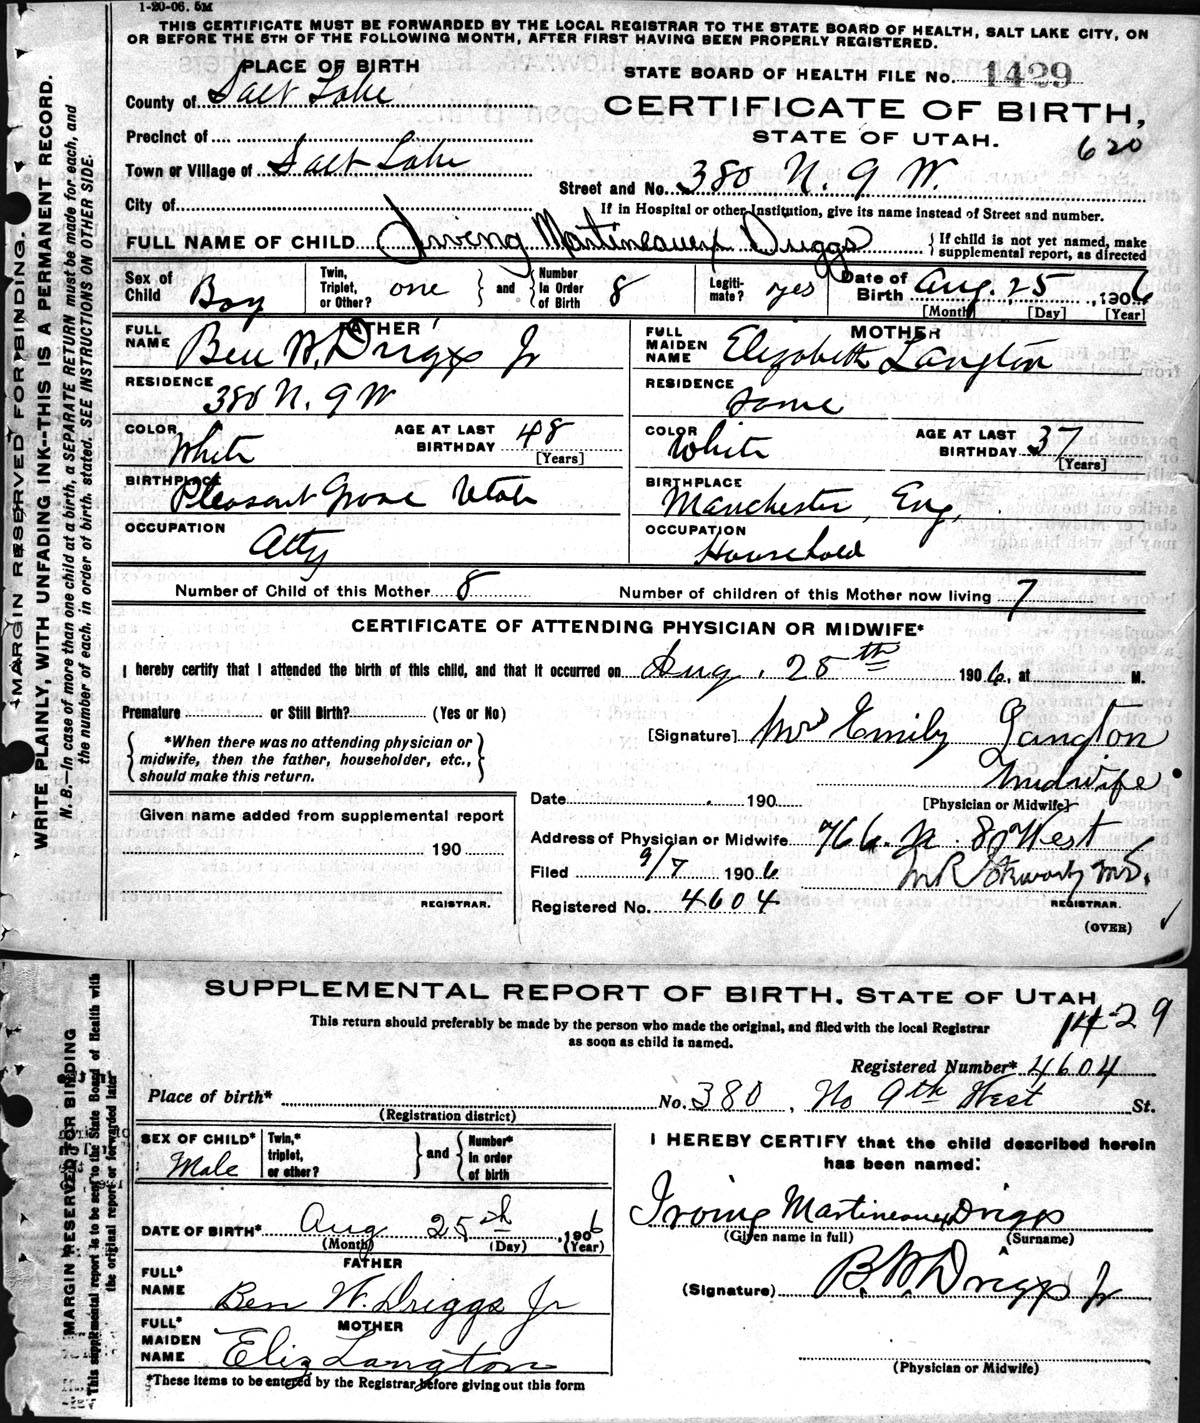 1-20-06. 5M
THIS CERTIFICATE MUST BE FORWARDED BY THE LOCAL REGISTRAR TO THE STATE BOARD OF HEALTH, SALT LAKE CITY, ON
OR BEFORE THE 5TH OF THE FOLLOWING MONTH, AFTER FIRST HAVING BEEN PROPERLY REGISTERED.
MARGIN RESERVED FOR BINDING.
WRITE PLAINLY, WITH UNFADING INK--THIS IS A PERMANENT RECORD.
N. B.—In case of more than one child at a birth, a SEPARATE RETURN must be made for each, and
the number of each, in order of birth, stated. SEE INSTRUCTIONS ON OTHER SIDE.
PLACE OF BIRTH
County of Salt Lake
Precinct of
Town or Village of Salt Lake
City of
STATE BOARD OF HEALTH FILE No. 1429
CERTIFICATE OF BIRTH,
STATE OF UTAH.
620
Street and No. 380 N. 9 W.
If in Hospital or other Institution, give its name instead of Street and number.
FULL NAME OF CHILD Irving Martineaux Driggs
If child is not yet named, make
supplemental report, as directed
Sex of Child Boy
Twin, Triplet, or Other? one
and
Number in Order of Birth 8
Legiti-mate? yes
Date of Birth Aug. 25, 1906
[Month] [Day] [Year]
FATHER
FULL NAME Ben W. Driggs Jr
RESIDENCE 380 N. 9 W
COLOR White
AGE AT LAST BIRTHDAY 48
[Years]
BIRTHPLACE Pleasant Grove Utah
OCCUPATION Atty
MOTHER
FULL MAIDEN NAME Elizabeth Langton
RESIDENCE same
COLOR White
AGE AT LAST BIRTHDAY 37
[Years]
BIRTHPLACE Manchester, Eng.
OCCUPATION Household
Number of Child of this Mother 8 Number of children of this Mother now living 7
CERTIFICATE OF ATTENDING PHYSICIAN OR MIDWIFE*
I hereby certify that I attended the birth of this child, and that it occurred on Aug. 25th 1906, at M.
Premature or Still Birth? (Yes or No)
*When there was no attending physician or
midwife, then the father, householder, etc.,
should make this return.
[Signature] Mrs Emily Langton
Midwife
[Physician or Midwife]
Given name added from supplemental report
190
REGISTRAR.
Date 190
Address of Physician or Midwife 766. N. 8 West
Filed 9/7 1906
Registered No. 4604
REGISTRAR.
(OVER)
MARGIN RESERVED FOR BINDING
This supplemental report is to be sent to the State Board of Health with
the original report or forwarded later
SUPPLEMENTAL REPORT OF BIRTH, STATE OF UTAH
1429
This return should preferably be made by the person who made the original, and filed with the local Registrar
as soon as child is named.
Registered Number* 4604
Place of birth* No. 380, No 9th West St.
(Registration district)
SEX OF CHILD* Male
Twin,* triplet, or other?
and
Number* in order of birth
DATE OF BIRTH* Aug 25th, 1906
(Month) (Day) (Year)
FATHER
FULL* NAME Ben W. Driggs Jr
MOTHER
FULL* MAIDEN NAME Eliz Langton
*These items to be entered by the Registrar before giving out this form
I HEREBY CERTIFY that the child described herein
has been named:
Irving Martineaux Driggs
(Given name in full) (Surname)
(Signature) B. W. Driggs Jr
(Physician or Midwife)